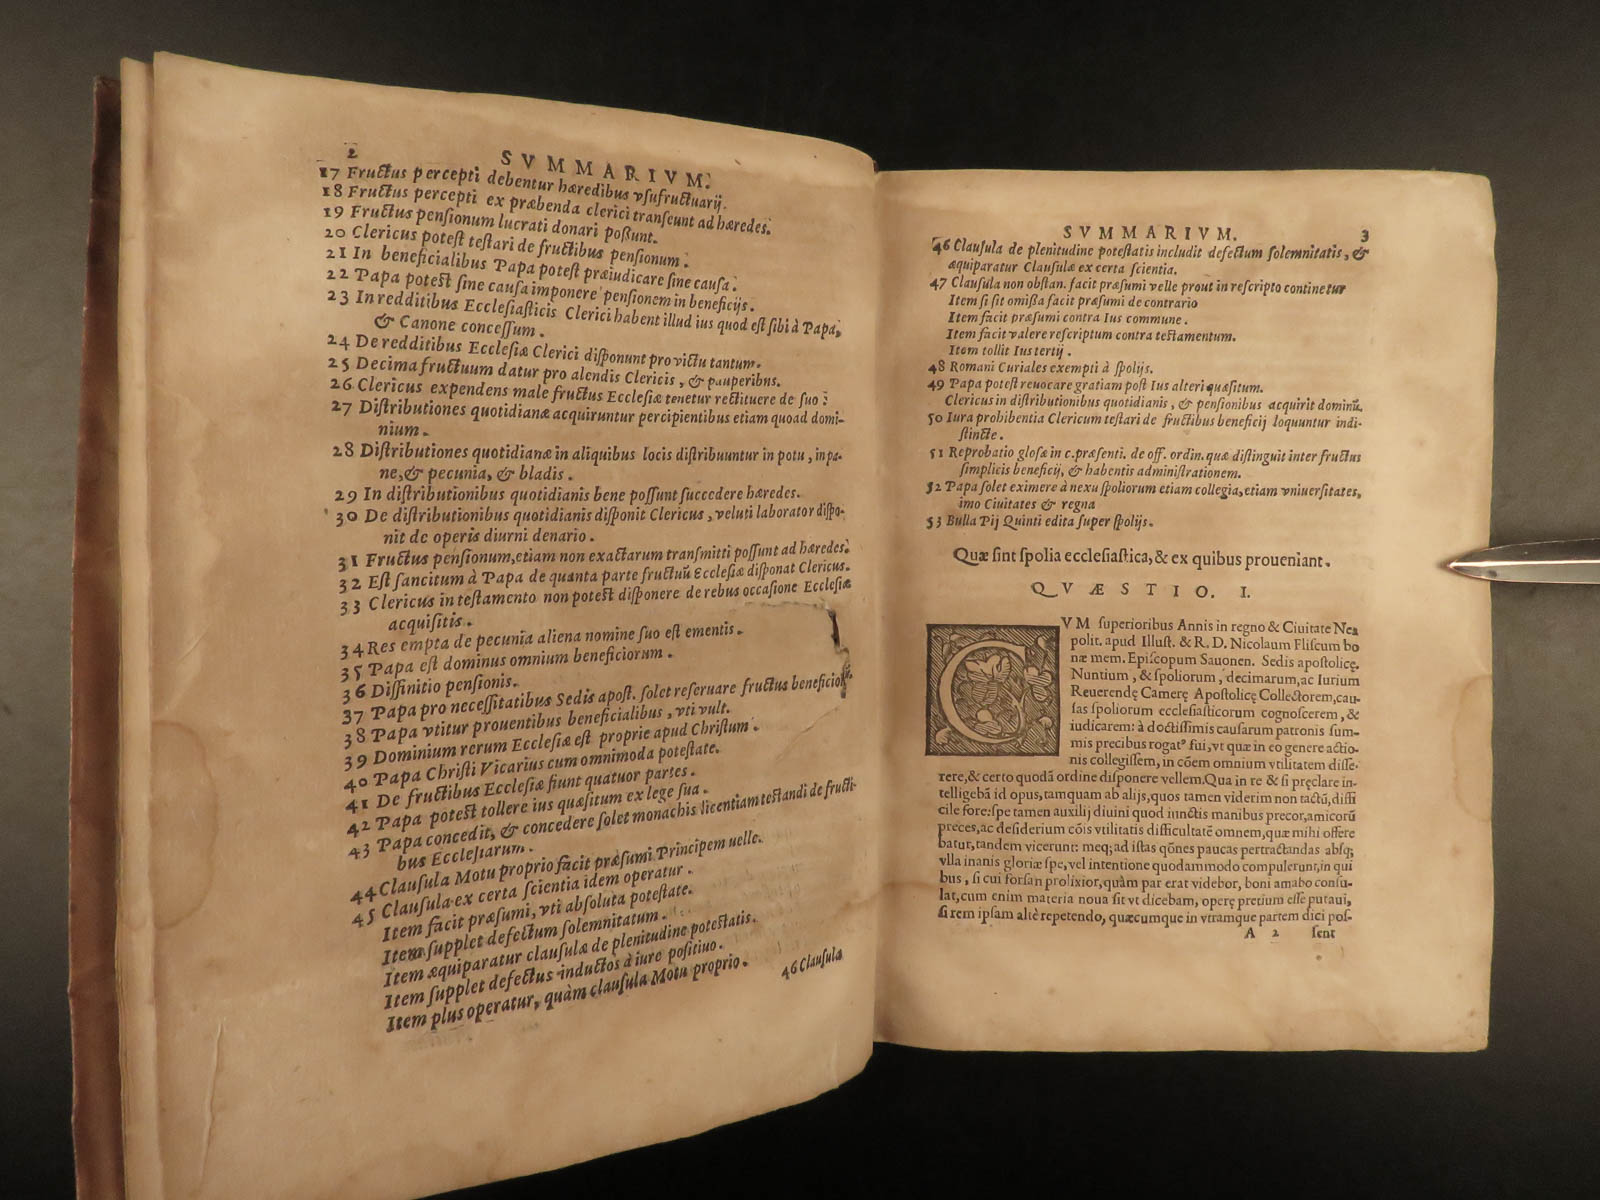 2
SVMMARIVM.
17 Fructus percepti debentur hæredibus vsufructuarij.
18 Fructus percepti ex præbenda clerici transeunt ad hæredes.
19 Fructus pensionum lucrati donari possunt.
20 Clericus potest testari de fructibus pensionum.
21 In beneficialibus Papa potest præiudicare sine causa.
22 Papa potest sine causa imponere pensionem in beneficijs.
23 In redditibus Ecclesiasticis Clerici habent illud ius quod est sibi à Papa,
& Canone concessum.
24 De redditibus Ecclesiæ Clerici disponunt pro victu tantum.
25 Decima fructuum datur pro alendis Clericis, & pauperibns.
26 Clericus expendens male fructus Ecclesiæ tenetur rectituere de suo:
27 Distributiones quotidianæ acquiruntur percipientibus etiam quoad domi-
nium.
28 Distributiones quotidianæ in aliquibus locis distribuuntur in potu, in pa-
ne, & pecunia, & bladis.
29 In distributionibus quotidianis bene possunt succedere hæredes.
30 De distributionibus quotidianis disponit Clericus, veluti laborator dispo-
nit de operis diurni denario.
31 Fructus pensionum, etiam non exactarum transmitti possunt ad hæredes.
32 Est sancitum à Papa de quanta parte fructuũ Ecclesiæ disponat Clericus.
33 Clericus in testamento non potest disponere de rebus occasione Ecclesiæ
acquisitis.
34 Res empta de pecunia aliena nomine suo est ementis.
35 Papa est dominus omnium beneficiorum.
36 Diffinitio pensionis.
37 Papa pro necessitatibus Sedis apost. solet reseruare fructus beneficiorũ
38 Papa vtitur prouentibus beneficialibus, vti vult.
39 Dominium rerum Ecclesiæ est proprie apud Christum.
40 Papa Christi Vicarius cum omnimoda potestate.
41 De fructibus Ecclesiæ fiunt quatuor partes.
42 Papa potest tollere ius quæsitum ex lege sua.
43 Papa concedit, & concedere solet monachis licentiam testandi de fructi-
bus Ecclesiarum.
44 Clausula Motu proprio facit præsumi Principem uelle.
45 Clausula ex certa scientia idem operatur.
Item facit præsumi, vti absoluta potestate.
Item supplet defectum solemnitatum.
Item æquiparatur clausulæ de plenitudine potestatis.
Item supplet defectus inductos à iure positiuo.
Item plus operatur, quàm clausula Motu proprio.
46 Clausula
SVMMARIVM.
3
46 Clausula de plenitudine potestatis includit defectum solemnitatis, &
æquiparatur Clausulæ ex certa scientia.
47 Clausula non obstan. facit præsumi velle prout in rescripto continetur
Item si sit omissa facit præsumi de contrario
Item facit præsumi contra Ius commune.
Item facit valere rescriptum contra testamentum.
Item tollit Ius tertij.
48 Romani Curiales exempti à spolijs.
49 Papa potest reuocare gratiam post Ius alteri quæsitum.
Clericus in distributionibus quotidianis, & pensionibus acquirit dominiũ.
50 Iura prohibentia Clericum testari de fructibus beneficij loquuntur indi-
stincte.
51 Reprobatio glosæ in c. præsenti. de off. ordin. quæ distinguit inter fructus
simplicis beneficij, & habentis administrationem.
52 Papa solet eximere à nexu spoliorum etiam collegia, etiam vniuersitates,
imo Ciuitates & regna
53 Bulla Pij Quinti edita super spolijs.
Quæ sint spolia ecclesiastica, & ex quibus proueniant.
QVÆSTIO. I.
CVM superioribus Annis in regno & Ciuitate Nea
polit. apud Illust. & R. D. Nicolaum Fliscum bo
næ mem. Episcopum Sauonen. Sedis apostolicę
Nuntium, & spoliorum, decimarum, ac Iurium
Reuerendę Camerę Apostolicę Collectorem, cau-
sas spoliorum ecclesiasticorum cognoscerem, &
iudicarem: à doctissimis causarum patronis sum-
mis precibus rogatꝰ fui, vt quæ in eo genere actio-
nis collegissem, in cõem omnium vtilitatem disse-
rere, & certo quodã ordine disponere vellem. Qua in re & si pręclare in-
telligebã id opus, tamquam ab alijs, quos tamen viderim non tactũ, diffi
cile fore: spe tamen auxilij diuini quod iunctis manibus precor, amicorũ
preces, ac desiderium cõis vtilitatis difficultatẽ omnem, quæ mihi offere
batur, tandem vicerunt: meq; ad istas qõnes paucas pertractandas absq;
vlla inanis gloriæ spe, vel intentione quodammodo compulerunt, in qui
bus, si cui forsan prolixior, quàm par erat videbor, boni amabo consu-
lat, cum enim materia noua sit vt dicebam, operę pretium esse putaui,
si rem ipsam altè repetendo, quæcumque in vtramque partem dici pos-
A 2
sent